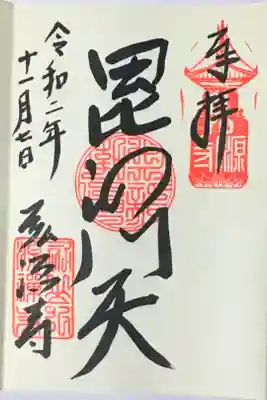 奉拝
毘沙門天
令和二年
十一月七日
弘源寺